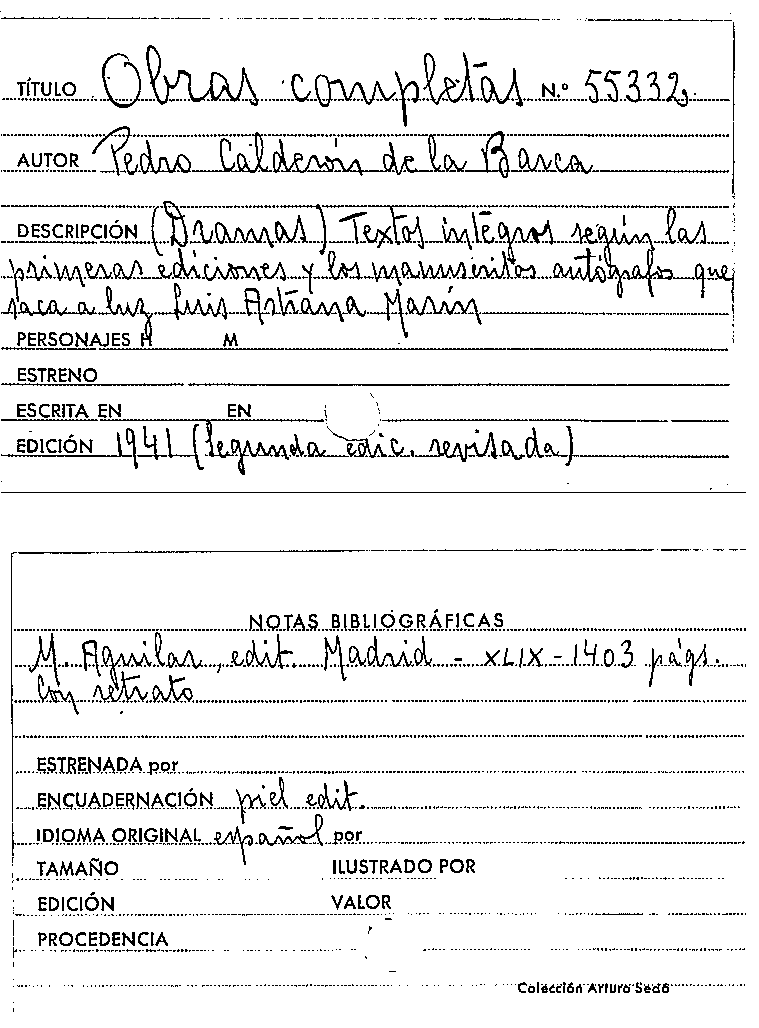 TÍTULO Obras completas N.º 55332
AUTOR Pedro Calderón de la Barca
DESCRIPCIÓN (Dramas) Textos íntegros según las
primeras ediciones y los manuscritos autógrafos que
saca a luz Luis Astrana Marín
PERSONAJES H M
ESTRENO
ESCRITA EN EN
EDICIÓN 1941 (Segunda edic. revisada)
NOTAS BIBLIOGRÁFICAS
M. Aguilar, edit. Madrid - XLIX - 1403 págs.
Con retrato
ESTRENADA por
ENCUADERNACIÓN piel edit.
IDIOMA ORIGINAL español por
TAMAÑO ILUSTRADO POR
EDICIÓN VALOR
PROCEDENCIA
Colección Arturo Sedó